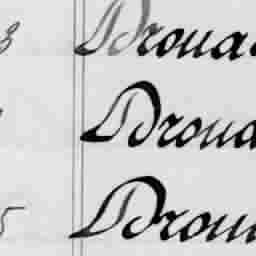 3 Droua
Droua
5 Drou